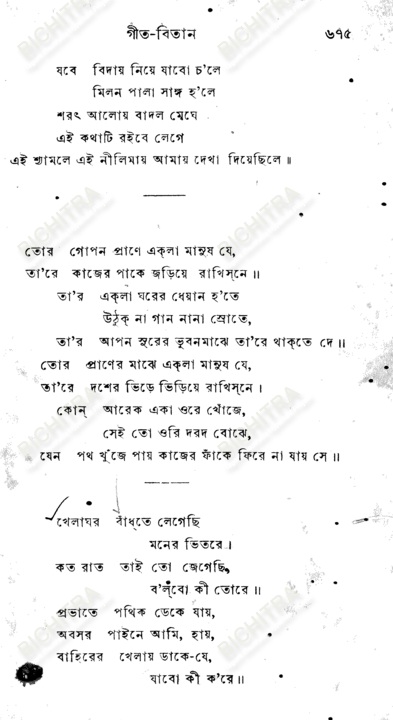 গীত-বিতান ৬৭৫
যবে বিদায় নিয়ে যাবো চ'লে
মিলন পালা সাঙ্গ হ'লে
শরৎ আলোয় বাদল মেঘে
এই কথাটি রইবে লেগে
এই শ্যামলে এই নীলিমায় আমায় দেখা দিয়েছিলে॥
তোর গোপন প্রাণে একলা মানুষ যে,
তা'রে কাজের পাকে জড়িয়ে রাখিস্‌নে॥
তা'র একলা ঘরের ধেয়ান হ'তে
উঠুক্ না গান নানা স্রোতে,
তা'র আপন সুরের ভুবনমাঝে তা'রে থাক্‌তে দে॥
তোর প্রাণের মাঝে একলা মানুষ যে,
তা'রে দশের ভিড়ে ভিড়িয়ে রাখিস্‌নে।
কোন্ আরেক একা ওরে খোঁজে,
সেই তো ওরি দরদ বোঝে,
যেন পথ খুঁজে পায় কাজের ফাঁকে ফিরে না যায় সে॥
খেলাঘর বাঁধ্‌তে লেগেছি
মনের ভিতরে।
কত রাত তাই তো জেগেছি
ব'ল্‌বো কী তোরে॥
প্রভাতে পথিক ডেকে যায়,
অবসর পাইনে আমি, হায়,
বাহিরের খেলায় ডাকে-যে,
যাবো কী ক'রে॥
BICHITRA